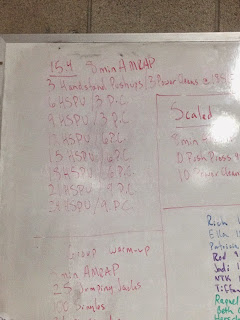 15.4 8 min AMRAP
3 Handstand Pushups/3 Power Cleans @ 185
6 HSPU/3 P.C
9 HSPU/3 P.C
12 HSPU/6 P.C
15 HSPU/6 P.C
18 HSPU/6 P.C
21 HSPU/9 P.C
24 HSPU/9 P.C
Scaled
8 min
10 Push Press
10 Power Clean
Group warm-up
min AMRAP
25 Jumping Jacks
50 Singles
Rich
Ella
Patricia
Rod
Jodi
Tiffan
Raquel
Beth